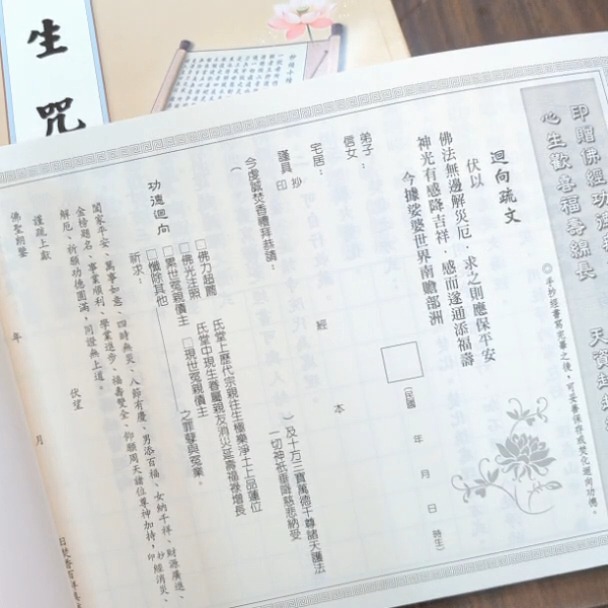 生
咒
印贈佛經功
心生歡喜福壽綿長
◎手抄經書寫完畢之後，可妥善保存或焚化迴向功德。
迴向疏文
伏以
佛法無邊解災厄．求之則應保平安
神光有感降吉祥．感而遂通添福壽
今據娑婆世界南瞻部洲
弟子：
信女：
（民國　年　月　日　時生）
宅居：
謹具 抄 印　經　本
今虔誠焚香禮拜恭請：
（　）及十方三寶萬德千尊諸天護法
一切神祇垂降慈悲納受
功德迴向
□佛力超薦　氏堂上歷代宗親往生極樂淨土上品蓮位
□佛光注照　氏堂中現生眷屬親友消災延壽福祿增長
□累世冤親債主　□現世冤親債主
□懺除其他　之罪孽與冤業。
祈求：
闔家平安、萬事如意、四時無災、八節有慶、男添百福、女納千祥、財源廣進、
金榜題名、事業順利、學業進步、福壽雙全、仰願周天諸位尊神加持，印抄經消災、
解厄、祈願功德圓滿、同證無上道。
伏望
謹疏上獻
佛聖朗鑒
年　月